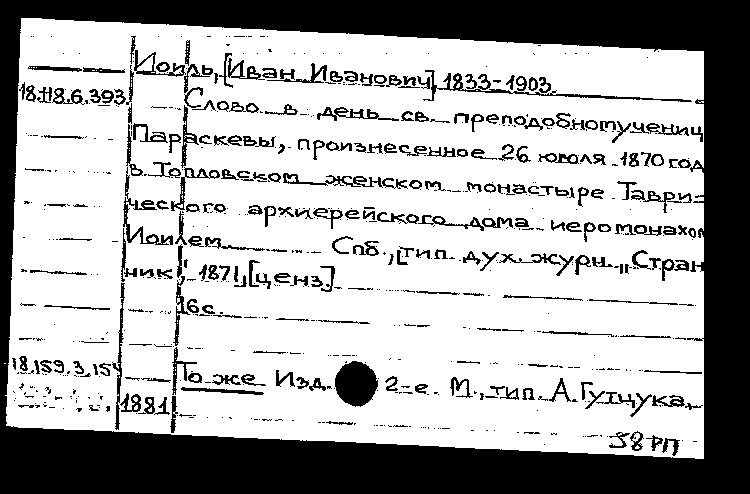 Иоиль, [Иван Иванович], 1833-1903.
18.118.6.393. Слово в день св. преподобномучениц
Параскевы, произнесенное 26 июля 1870 год
в Топловском женском монастыре Таври=
ческого архиерейского дома иеромонахом
Иоилем. Спб., [тип. дух. журн. „Стран
ник", 1871, [ценз]
16с.
18.159.3.154 То же Изд. 2-е. М., тип. А. Гутцука,
1881
58 РП